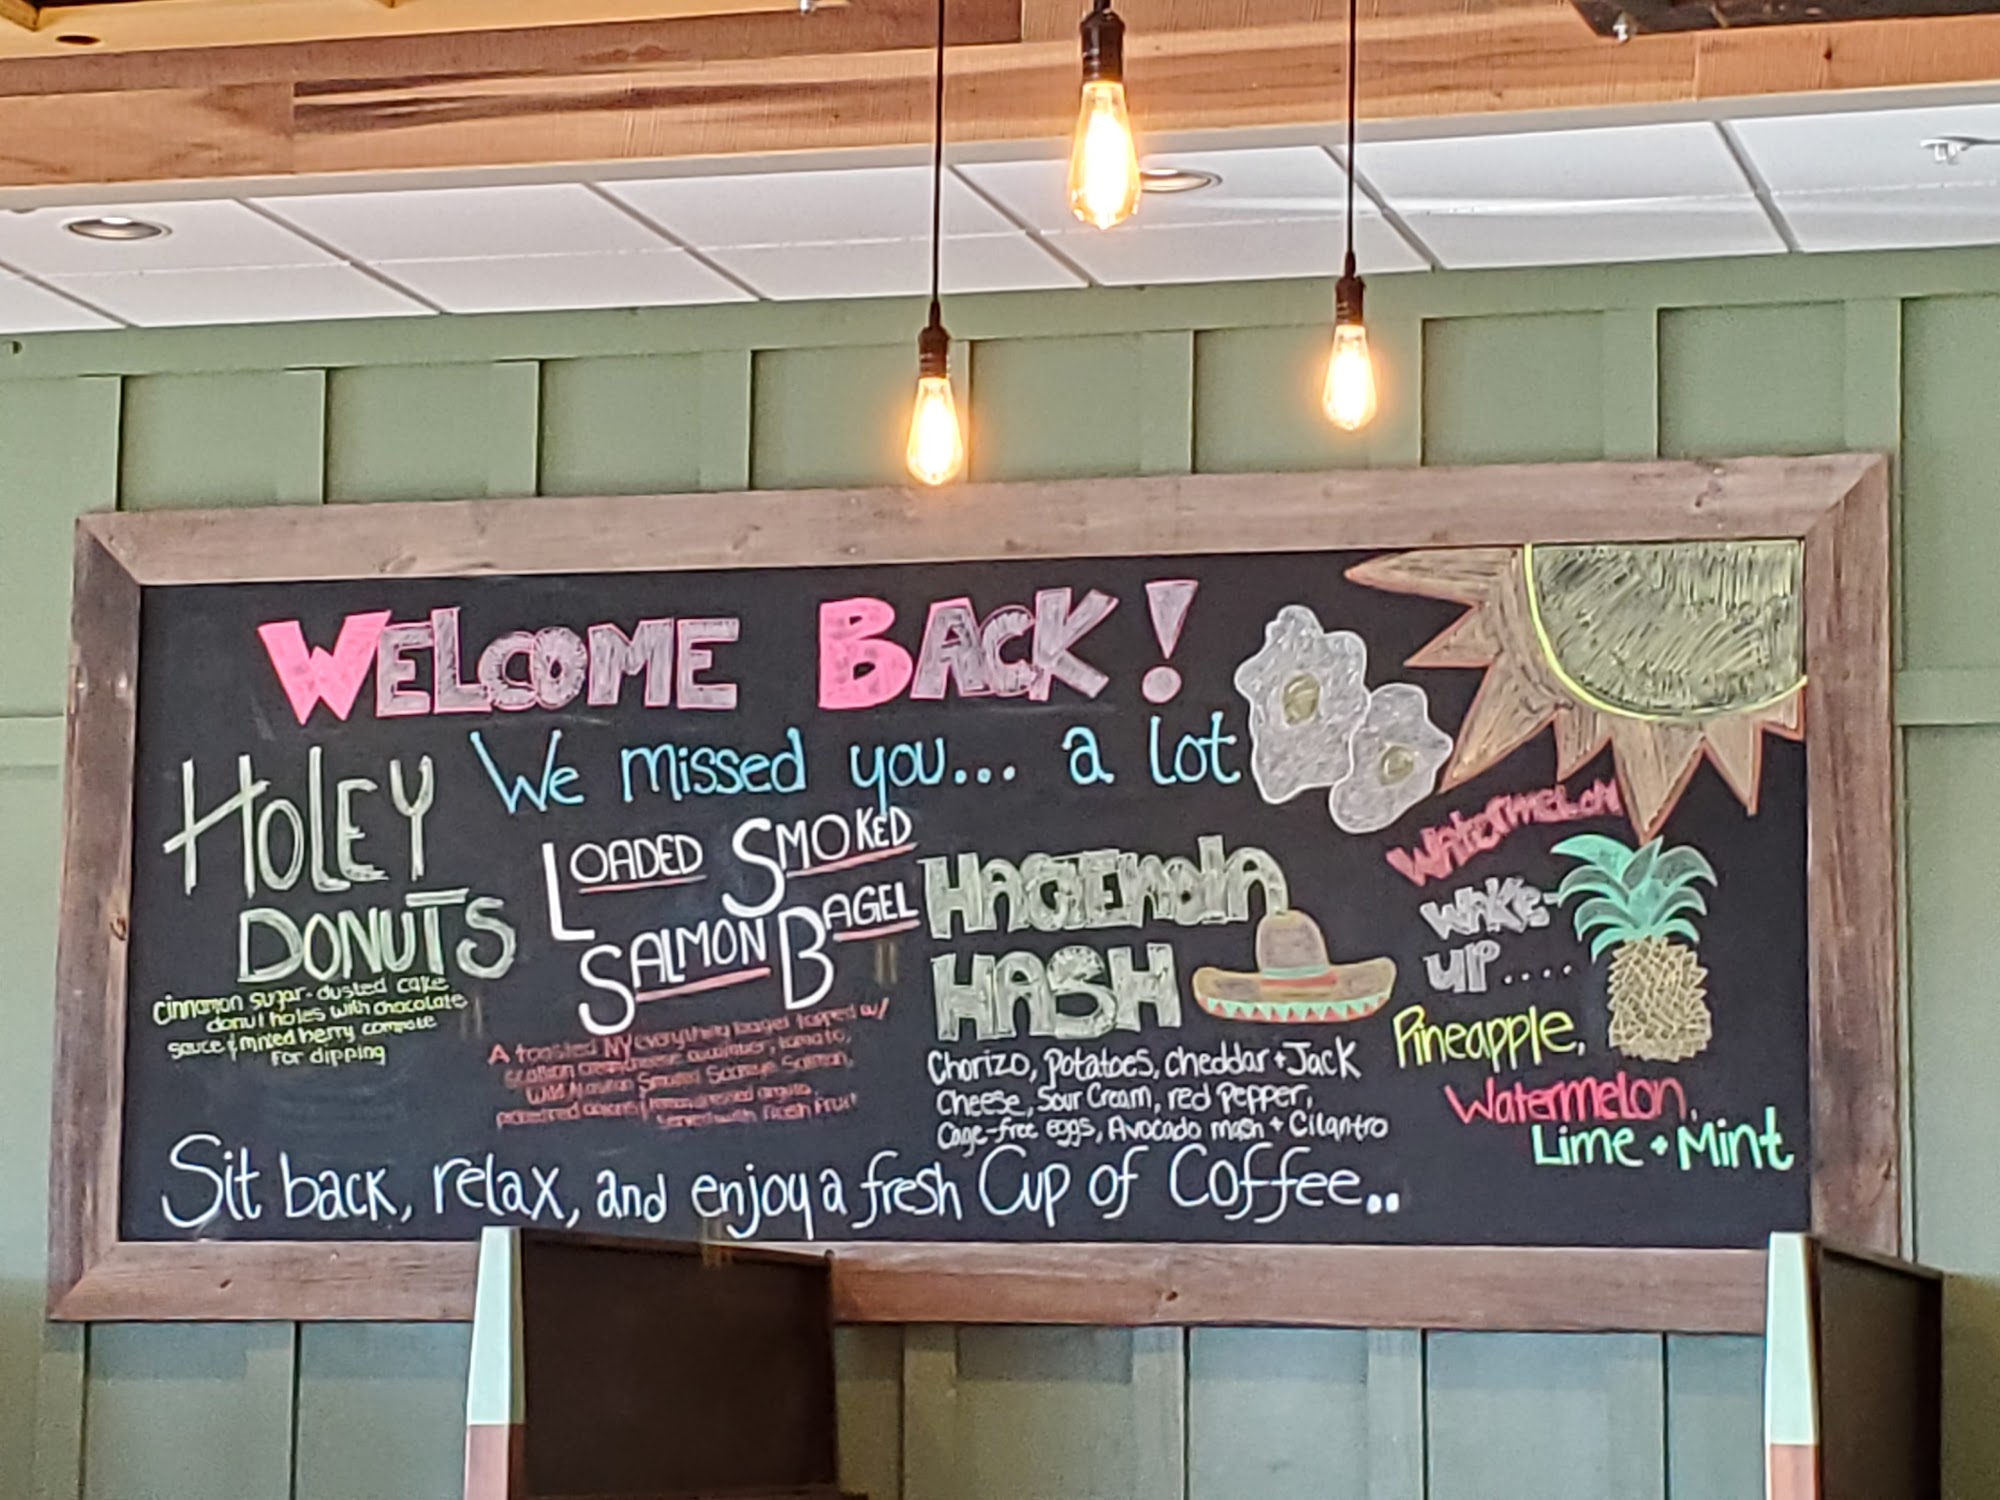 WELCOME BACK!
We missed you... a lot
HOLEY
DONUTS
cinnamon sugar-dusted cake
donut holes with chocolate
sauce & mixed berry compote
for dipping
LOADED SMOKED
SALMON BAGEL
A toasted NY everything bagel topped w/
scallion cream cheese cucumber, tomato,
Wild Alaskan Smoked Sockeye Salmon,
lemon dressed arugula
Served with fresh Fruit
HACIENDA
HASH
Chorizo, Potatoes, cheddar + Jack
Cheese, Sour Cream, red Pepper,
Cage-free eggs, Avocado mash + Cilantro
WATERMELON
WAKE-
UP....
Pineapple,
Watermelon,
Lime + Mint
Sit back, relax, and enjoy a fresh Cup of Coffee..